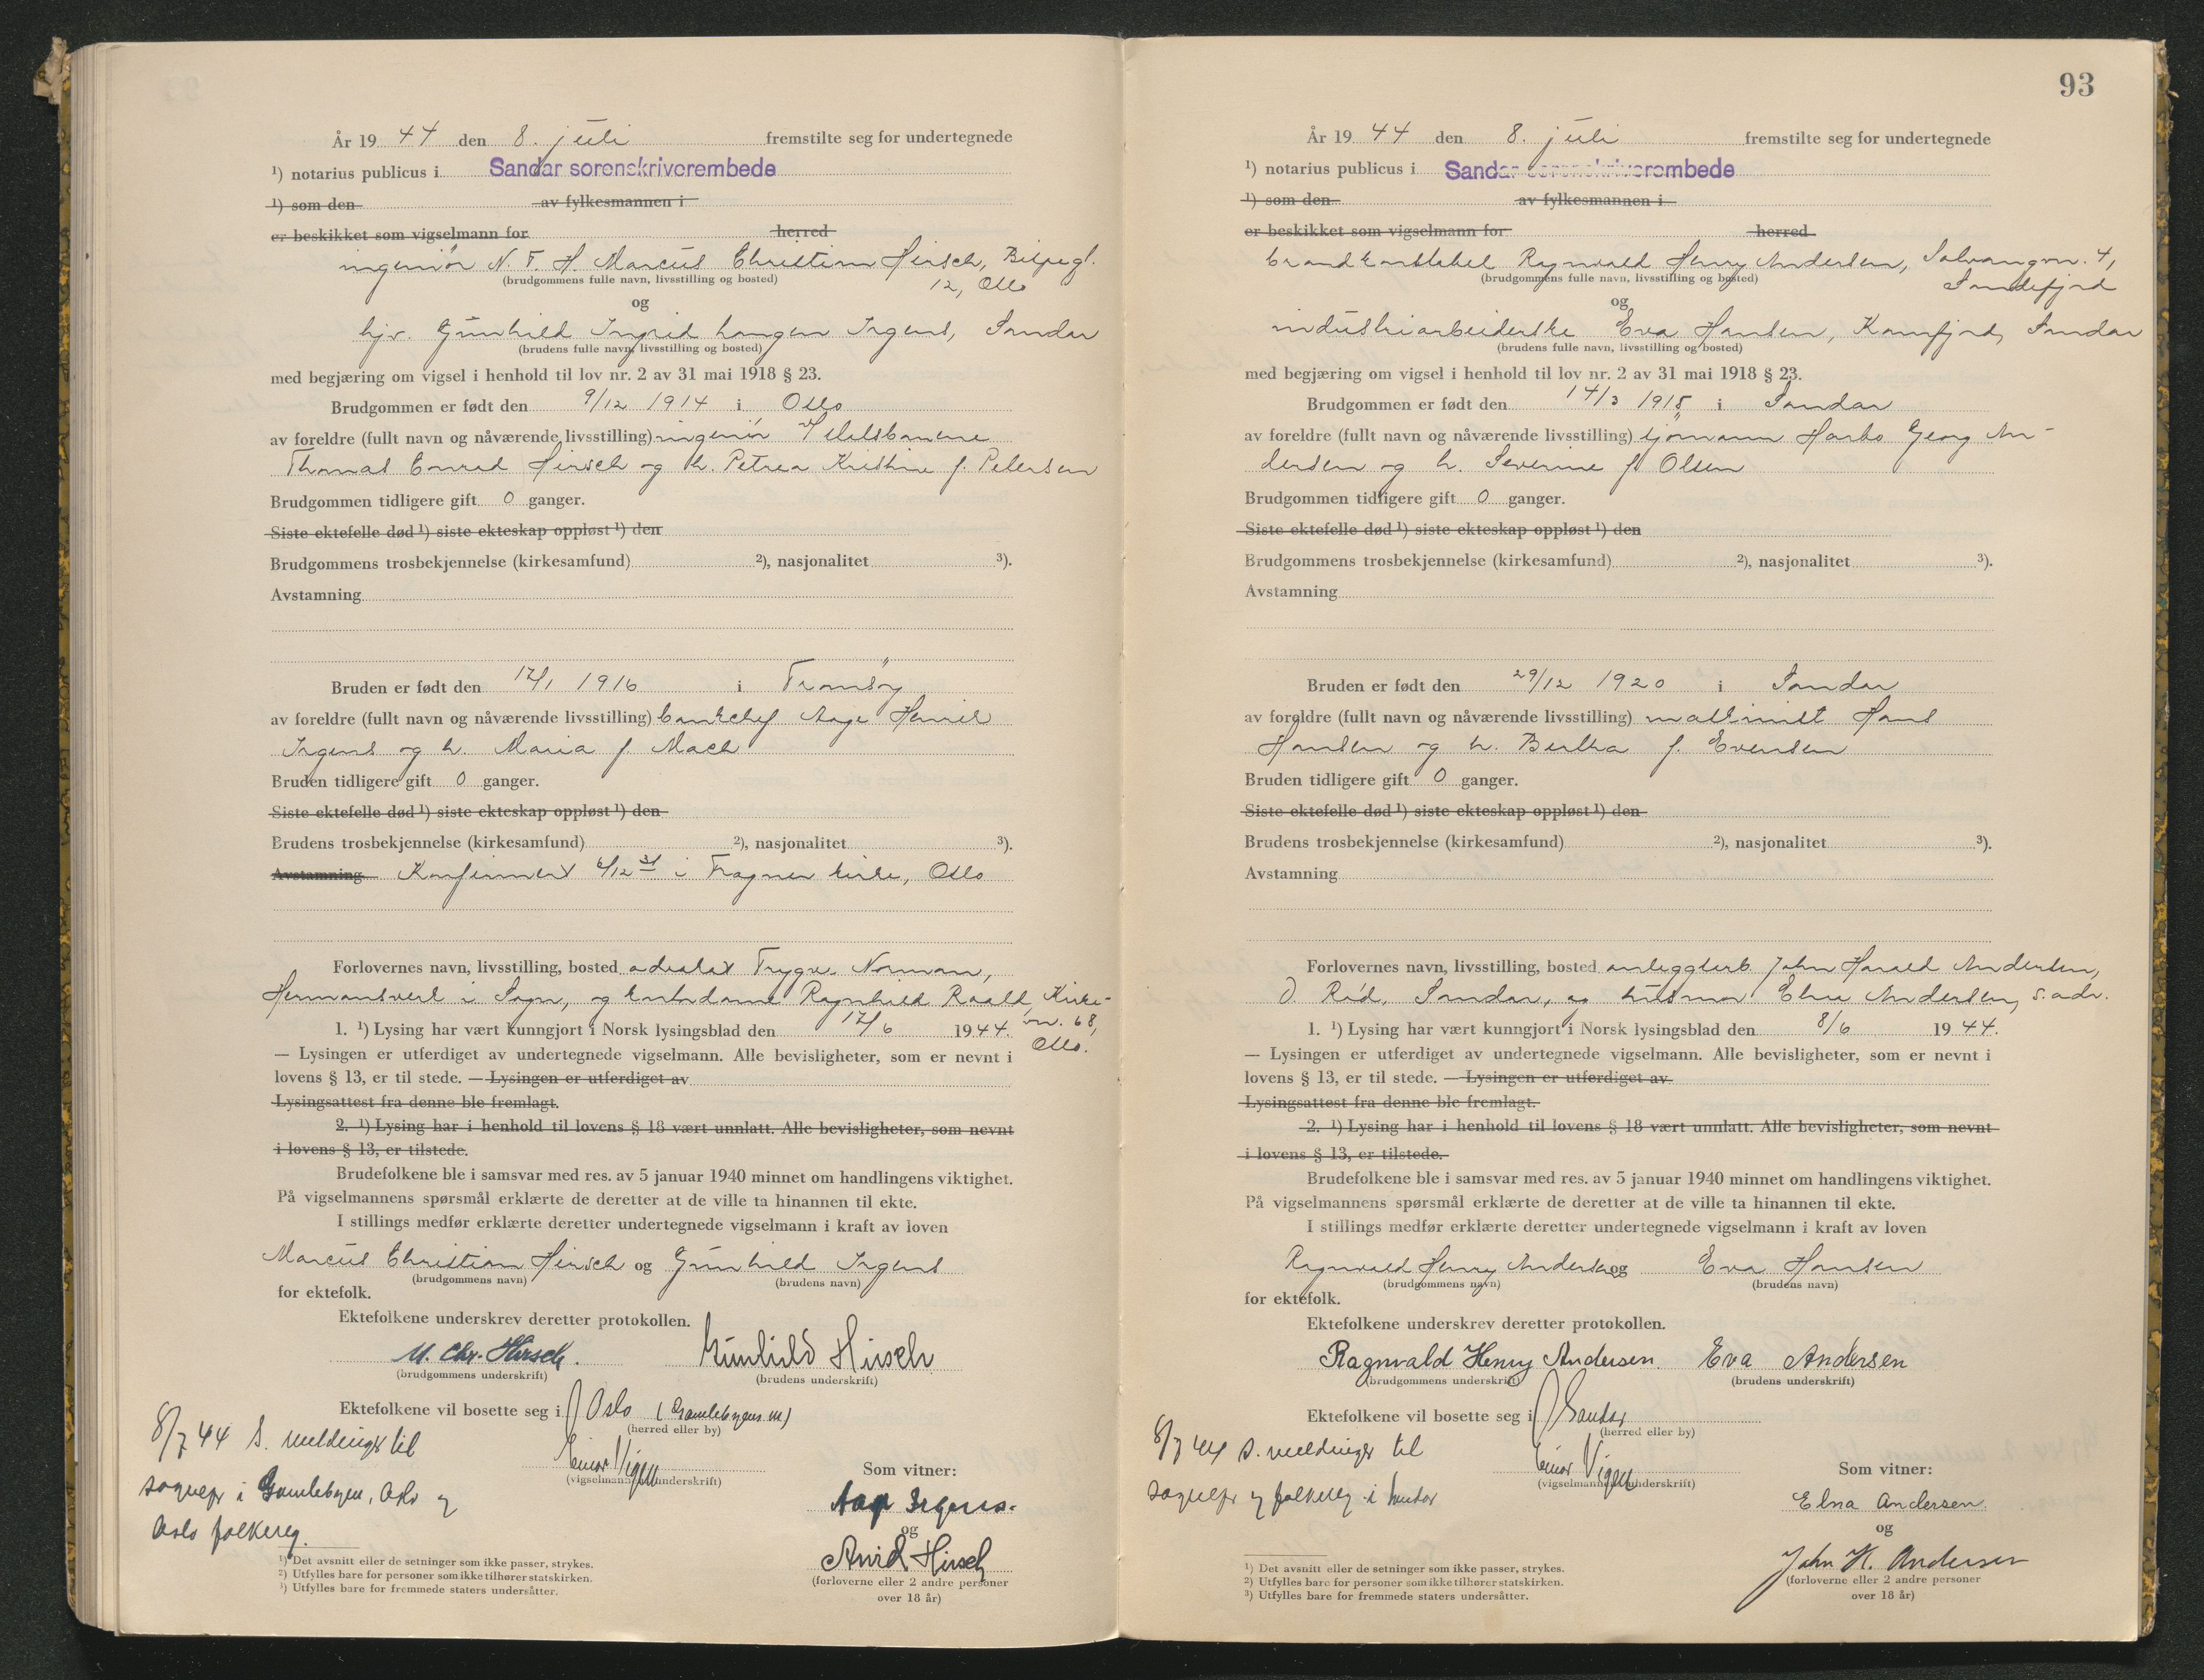 År 19 44 den 8. juli fremstilte seg for undertegnede
¹) notarius publicus i Sandar sorenskriverembede
¹) som den av fylkesmannen i
er beskikket som vigselmann for herred
ingeniør N. T. H. Marcus Christian Hirsch, Bispegt.
(brudgommens fulle navn, livsstilling og bosted)
12, Oslo
og
hjv. Gunhild Ingrid Langen Irgens, Sandar
(brudens fulle navn, livsstilling og bosted)
med begjæring om vigsel i henhold til lov nr. 2 av 31 mai 1918 § 23.
Brudgommen er født den 9/12 1914 i Oslo
av foreldre (fullt navn og nåværende livsstilling) ingeniør v/Statsbanene
Thomas Conrad Hirsch og h. Petrea Kristine f. Petersen
Brudgommen tidligere gift 0 ganger.
Siste ektefelle død ¹) siste ekteskap oppløst ¹) den
Brudgommens trosbekjennelse (kirkesamfund) ²), nasjonalitet ³).
Avstamning
Bruden er født den 12/1 1916 i Tromsø
av foreldre (fullt navn og nåværende livsstilling) banksjef Aage Henrik
Irgens og h. Maria f. Mack
Bruden tidligere gift 0 ganger.
Siste ektefelle død ¹) siste ekteskap oppløst ¹) den
Brudens trosbekjennelse (kirkesamfund) ²), nasjonalitet ³).
Avstamning Konfirmert 6/12 31 i Frogner kirke, Oslo
Forlovernes navn, livsstilling, bosted advokat Trygve Norman,
Hermansverk i Sogn, og kontordame Ragnhild Roald, Kirke-
vn. 68,
Oslo.
1. ¹) Lysing har vært kunngjort i Norsk lysingsblad den 12/6 1944.
— Lysingen er utferdiget av undertegnede vigselmann. Alle bevisligheter, som er nevnt i
lovens § 13, er til stede. — Lysingen er utferdiget av
Lysingsattest fra denne ble fremlagt.
2. ¹) Lysing har i henhold til lovens § 18 vært unnlatt. Alle bevisligheter, som nevnt
i lovens § 13, er tilstede.
Brudefolkene ble i samsvar med res. av 5 januar 1940 minnet om handlingens viktighet.
På vigselmannens spørsmål erklærte de deretter at de ville ta hinannen til ekte.
I stillings medfør erklærte deretter undertegnede vigselmann i kraft av loven
Marcus Christian Hirsch og Gunhild Irgens
(brudgommens navn) (brudens navn)
for ektefolk.
Ektefolkene underskrev deretter protokollen.
M. Chr. Hirsch. Gunhild Hirsch
(brudgommens underskrift) (brudens underskrift)
Ektefolkene vil bosette seg i Oslo (Gamlebyens m)
(herred eller by)
8/7 44 s. meldinger til
sognepr i Gamlebyen, Oslo og
Oslo folkereg.
Einar Vigeu
(vigselmannens underskrift)
Som vitner:
Aage Irgens.
og
Arvid Hirsch
(forloverne eller 2 andre personer
over 18 år)
¹) Det avsnitt eller de setninger som ikke passer, strykes.
²) Utfylles bare for personer som ikke tilhører statskirken.
³) Utfylles bare for fremmede staters undersåtter.
93
År 19 44 den 8. juli fremstilte seg for undertegnede
¹) notarius publicus i Sandar sorenskriverembede
¹) som den av fylkesmannen i
er beskikket som vigselmann for herred
brandkonstabel Ragnvald Henry Andersen, Solvangvn. 4,
(brudgommens fulle navn, livsstilling og bosted)
Sandefjord
og
industriarbeiderske Eva Hansen, Kamfjord, Sandar
(brudens fulle navn, livsstilling og bosted)
med begjæring om vigsel i henhold til lov nr. 2 av 31 mai 1918 § 23.
Brudgommen er født den 14/3 1915 i Sandar
av foreldre (fullt navn og nåværende livsstilling) sjømann Harbo Georg An-
dersen og h. Severine f. Olsen
Brudgommen tidligere gift 0 ganger.
Siste ektefelle død ¹) siste ekteskap oppløst ¹) den
Brudgommens trosbekjennelse (kirkesamfund) ²), nasjonalitet ³).
Avstamning
Bruden er født den 29/12 1920 i Sandar
av foreldre (fullt navn og nåværende livsstilling) maskinist Hans
Hansen og h. Bertha f. Evensen
Bruden tidligere gift 0 ganger.
Siste ektefelle død ¹) siste ekteskap oppløst ¹) den
Brudens trosbekjennelse (kirkesamfund) ²), nasjonalitet ³).
Avstamning
Forlovernes navn, livsstilling, bosted anleggsarb. John Harald Andersen,
Ø. Rød, Sandar, og husmor Elna Andersen, s. adr.
1. ¹) Lysing har vært kunngjort i Norsk lysingsblad den 8/6 1944.
— Lysingen er utferdiget av undertegnede vigselmann. Alle bevisligheter, som er nevnt i
lovens § 13, er til stede. — Lysingen er utferdiget av
Lysingsattest fra denne ble fremlagt.
2. ¹) Lysing har i henhold til lovens § 18 vært unnlatt. Alle bevisligheter, som nevnt
i lovens § 13, er tilstede.
Brudefolkene ble i samsvar med res. av 5 januar 1940 minnet om handlingens viktighet.
På vigselmannens spørsmål erklærte de deretter at de ville ta hinannen til ekte.
I stillings medfør erklærte deretter undertegnede vigselmann i kraft av loven
Ragnvald Henry Andersen og Eva Hansen
(brudgommens navn) (brudens navn)
for ektefolk.
Ektefolkene underskrev deretter protokollen.
Ragnvald Henry Andersen. Eva Andersen
(brudgommens underskrift) (brudens underskrift)
Ektefolkene vil bosette seg i Sandar
(herred eller by)
8/7 44 s. meldinger til
sognepr og folkereg. i Sandar
Einar Vigeu
(vigselmannens underskrift)
Som vitner:
Elna Andersen
og
John H. Andersen
(forloverne eller 2 andre personer
over 18 år)
¹) Det avsnitt eller de setninger som ikke passer, strykes.
²) Utfylles bare for personer som ikke tilhører statskirken.
³) Utfylles bare for fremmede staters undersåtter.